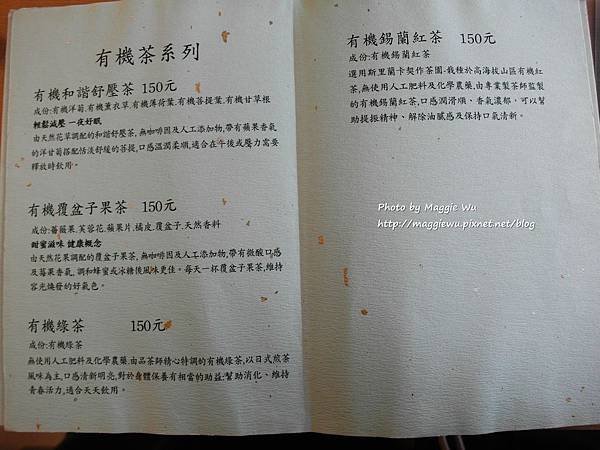 有機茶系列
有機和諧舒壓茶 150元
成份:有機洋菊.有機薰衣草.有機薄荷葉.有機菩提葉.有機甘草根
輕鬆減壓 一夜好眠
由天然花草調配的和諧舒壓茶,無咖啡因及人工添加物,帶有蘋果香氣
的洋甘菊搭配恬淡舒緩的菩提,口感溫潤柔順,適合在午後或壓力需要
釋放時飲用。
有機覆盆子果茶 150元
成份:薔薇果.芙蓉花.蘋果片.橘皮.覆盆子.天然香料
甜蜜滋味 健康概念
由天然花果調配的覆盆子果茶,無咖啡因及人工添加物,帶有微酸口感
及莓果香氣,調和蜂蜜或冰糖後風味更佳。每天一杯覆盆子果茶,維持
容光煥發的好氣色。
有機綠茶 150元
成份:有機綠茶
無使用人工肥料及化學農藥.由品茶師精心特調的有機綠茶,以日式煎茶
風味為主,口感清新明亮,對於身體保養有相當的助益:幫助消化、維持
青春活力,適合天天飲用。
有機錫蘭紅茶 150元
成份:有機錫蘭紅茶
選用斯里蘭卡契作茶園-栽種於高海拔山區有機紅
茶,無使用人工肥料及化學農藥.由專業製茶師監製
的有機錫蘭紅茶,口感潤滑順、香氣濃郁,可以幫
助提振精神、解除油膩感及保持口氣清新。
Photo by Maggie Wu
http://maggiewu.pixnet.net/blog